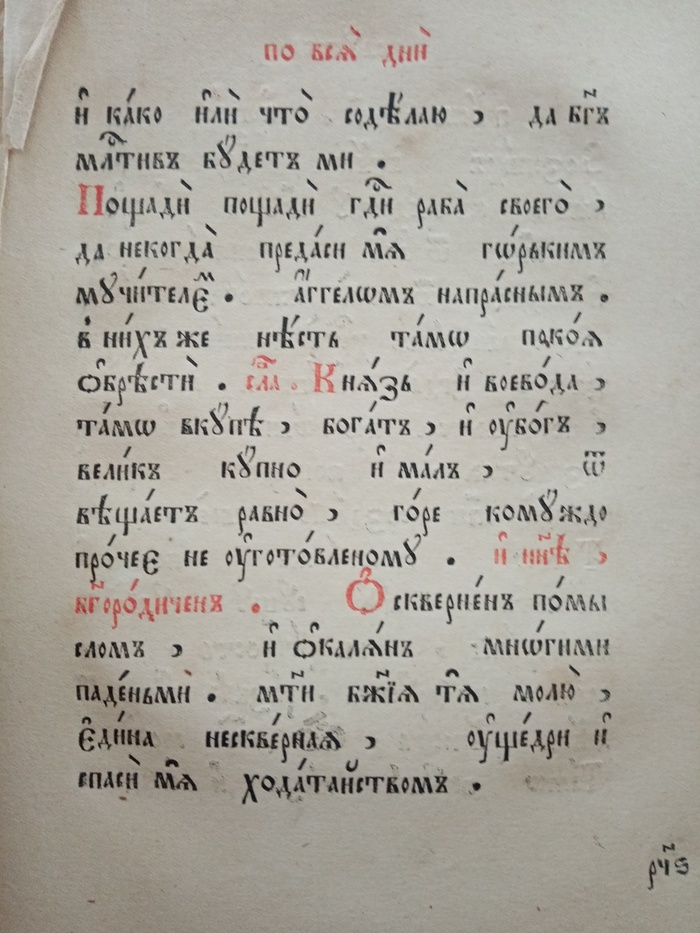 по всѧ̀ днѝ
и҆ ка́ко и҆лѝ что̀ содѣ́лаю , да бг҃ъ
мл҃тивъ бꙋ́детъ ми .
Пощадѝ пощадѝ гдⷭ҇и раба̀ своего̀ ,
да некогда̀ преда́си мѧ҆ гѡ́рькимъ
мꙋчи́телеⷨ . а҆́ггелѡмъ напра́снымъ .
в ни́хъ же нѣ́сть та́мѡ поко́ѧ
ѡ҆брѣстѝ . сла҃ . Кнѧ́зь и҆ воево́да ,
та́мѡ вкꙋ́пѣ , бога́тъ , и҆ оу҆бо́гъ ,
вели́къ кꙋ́пно и҆ ма́лъ , ѿ
вѣща́етъ равно̀ , го́ре комꙋ́ждо
про́чеє не оу҆гото́вленомꙋ . и҆ нн҃ѣ ,
бг҃оро́диченъ . Ѻ҆скверне́нъ по́мы
слом̾ъ , и҆ ѡ҆калѧ́нъ мнѡ́гими
паде́ньмѝ . мт҃и бж҃їѧ тѧ҆ молю̀ ,
є҆ди́на нескве́рнаѧ , оу҆ще́дри и҆
спасѝ мѧ҆ хода́тайством̾ъ .
рч҃ѕ